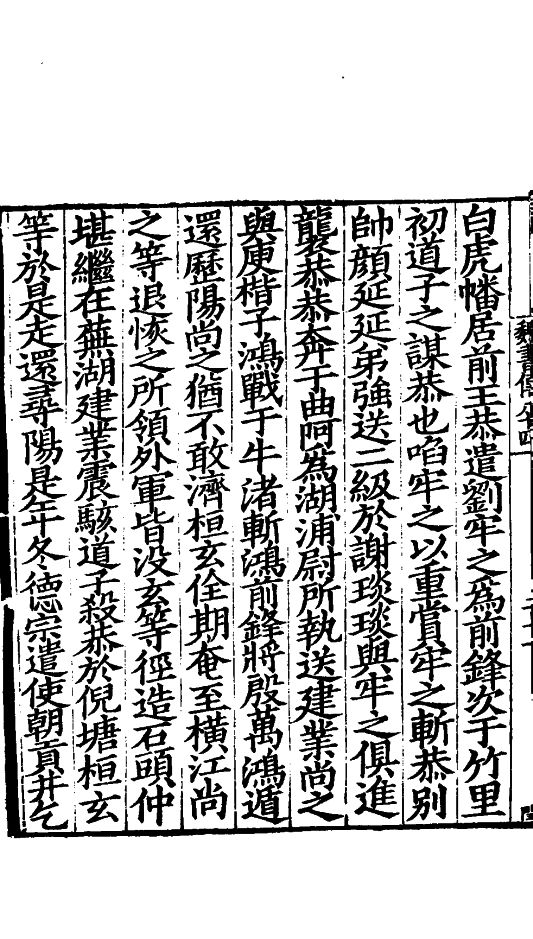 白虎幡居前王恭遣劉牢之爲前鋒次于竹里
初道子之謀恭也啗牢之以重賞牢之斬恭别
帥顔延延弟強送二級於謝琰琰與牢之俱進
襲恭恭奔于曲阿爲湖浦尉所執送建業尚之
與庾楷子鴻戰于牛渚斬鴻前鋒將殷萬鴻遁
還歷陽尚之猶不敢濟桓玄佺期奄至横江尚
之等退恢之所領外軍皆没玄等徑造石頭仲
堪繼在蕪湖建業震駭道子殺恭於倪塘桓玄
等於是走還尋陽是年冬德宗遣使朝貢并乞